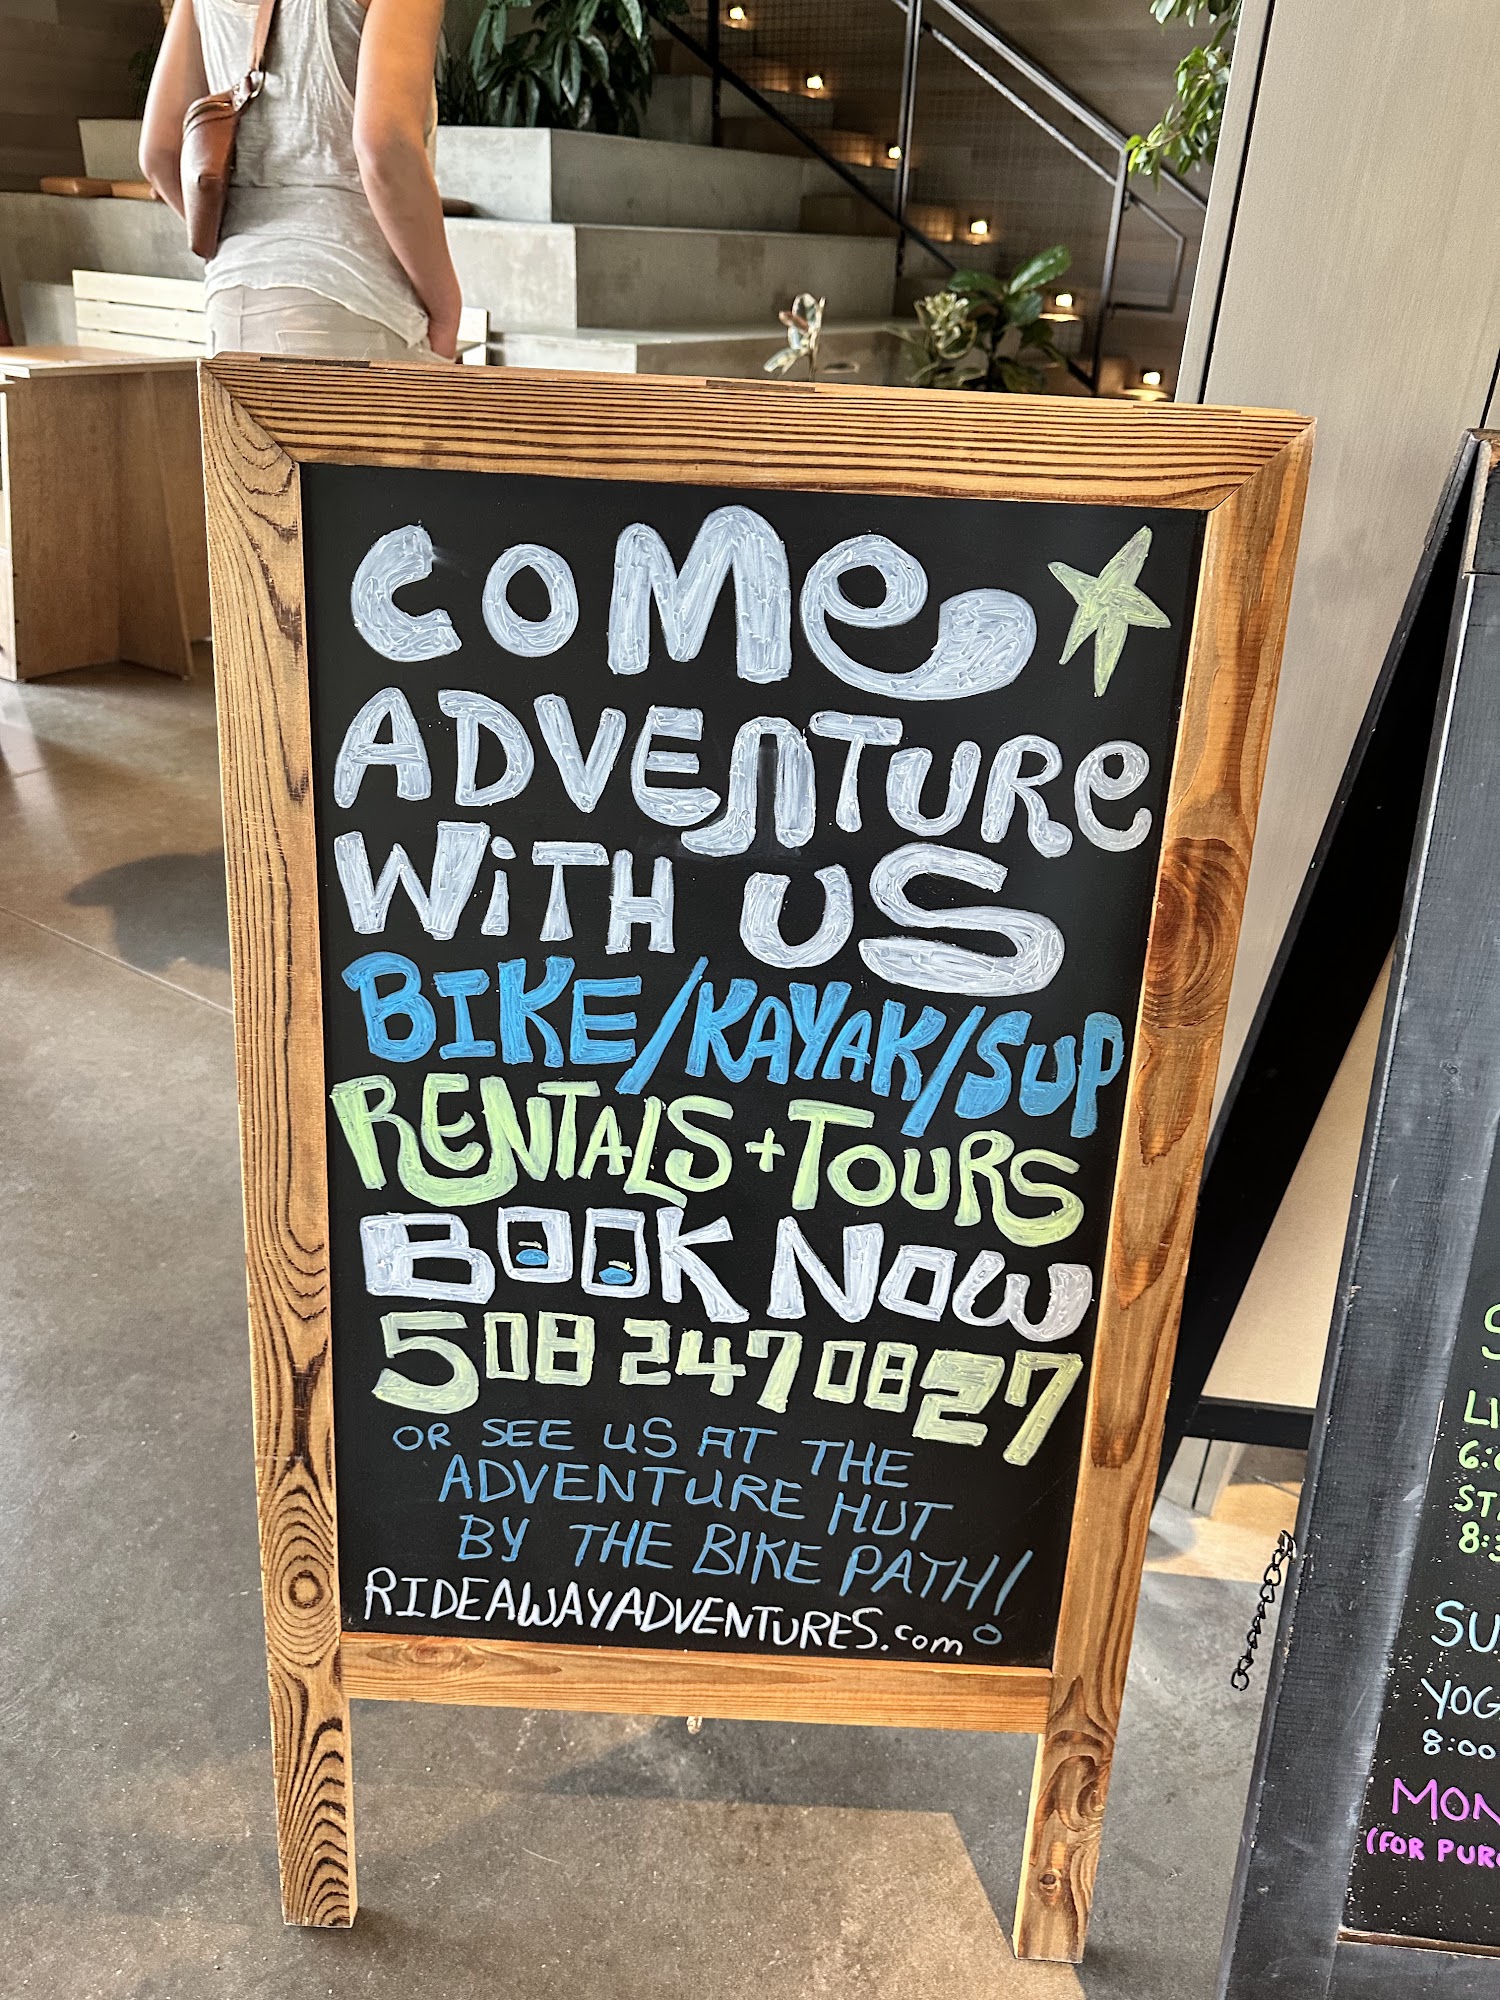 COME
ADVENTURE
WiTH US
BIKE/KAYAK/SUP
RENTALS + TOURS
BOOK NOW
508 247 0827
OR SEE US AT THE
ADVENTURE HUT
BY THE BIKE PATH!
RIDEAWAYADVENTURES.com
8:00
(FOR